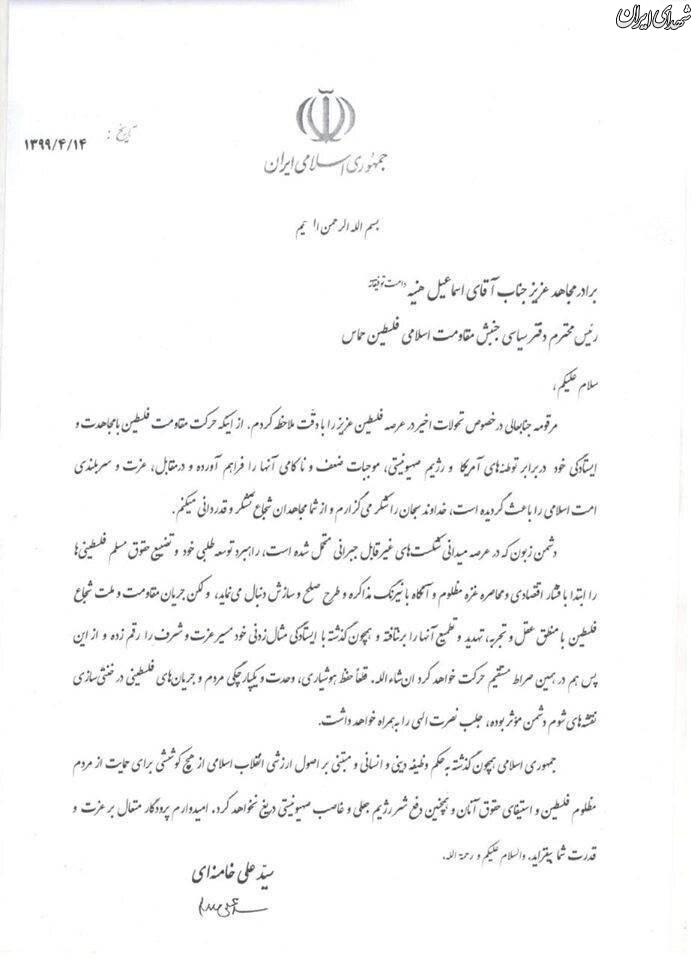 شهدای ایران
تاریخ : ۱۳۹۹/۴/۱۴
جمهوری اسلامی ایران
بسم الله الرحمن
برادر مجاهد عزیز جناب آقای اسماعیل هنیه دامت توفیقاته
رئیس محترم دفتر سیاسی جنبش مقاومت اسلامی فلسطین حماس
سلام علیکم،
مرقومه جنابعالی در خصوص تحولات اخیر در عرصه فلسطین عزیز را با دقّت ملاحظه کردم. از اینکه حرکت مقاومت فلسطین با مجاهدت و
ایستادگی خود در برابر توطئه‌های آمریکا و رژیم صهیونیستی، موجبات ضعف و ناکامی آنها را فراهم آورده و در مقابل، عزت و سربلندی
امت اسلامی را باعث گردیده است، خداوند سبحان را شکر می‌گزارم و از شما مجاهدان شجاع تشکر و قدردانی میکنم.
دشمن زبون که در عرصه میدانی شکست‌های غیرقابل جبرانی متحمل شده است، راهبرد توسعه طلبی خود و تضییع حقوق مسلم فلسطینی‌ها
را ابتدا با فشار اقتصادی و محاصره غزه مظلوم و آنگاه با نیرنگ مذاکره و طرح صلح و سازش دنبال می‌نماید، ولکن جریان مقاومت و ملت شجاع
فلسطین با منطق عقل و تجربه، تهدید و تطمیع آنها را برنتافته و همچون گذشته با ایستادگی مثال زدنی خود مسیر عزت و شرف را رقم زده و از این
پس هم در همین صراط مستقیم حرکت خواهد کرد ان‌شاءالله. قطعاً حفظ هوشیاری، وحدت و یکپارچگی مردم و جریان‌های فلسطینی در خنثی‌سازی
نقشه‌های شوم دشمن مؤثر بوده، جلب نصرت الهی را به همراه خواهد داشت.
جمهوری اسلامی همچون گذشته به حکم وظیفه دینی و انسانی و مبتنی بر اصول ارزشی انقلاب اسلامی از هیچ کوششی برای حمایت از مردم
مظلوم فلسطین و استیفای حقوق آنان و همچنین دفع شر رژیم جعلی و غاصب صهیونیستی دریغ نخواهد کرد. امیدوارم پروردگار متعال بر عزت و
قدرت شما بیفزاید. والسلام علیکم و رحمة الله.
سیّد علی خامنه‌ای